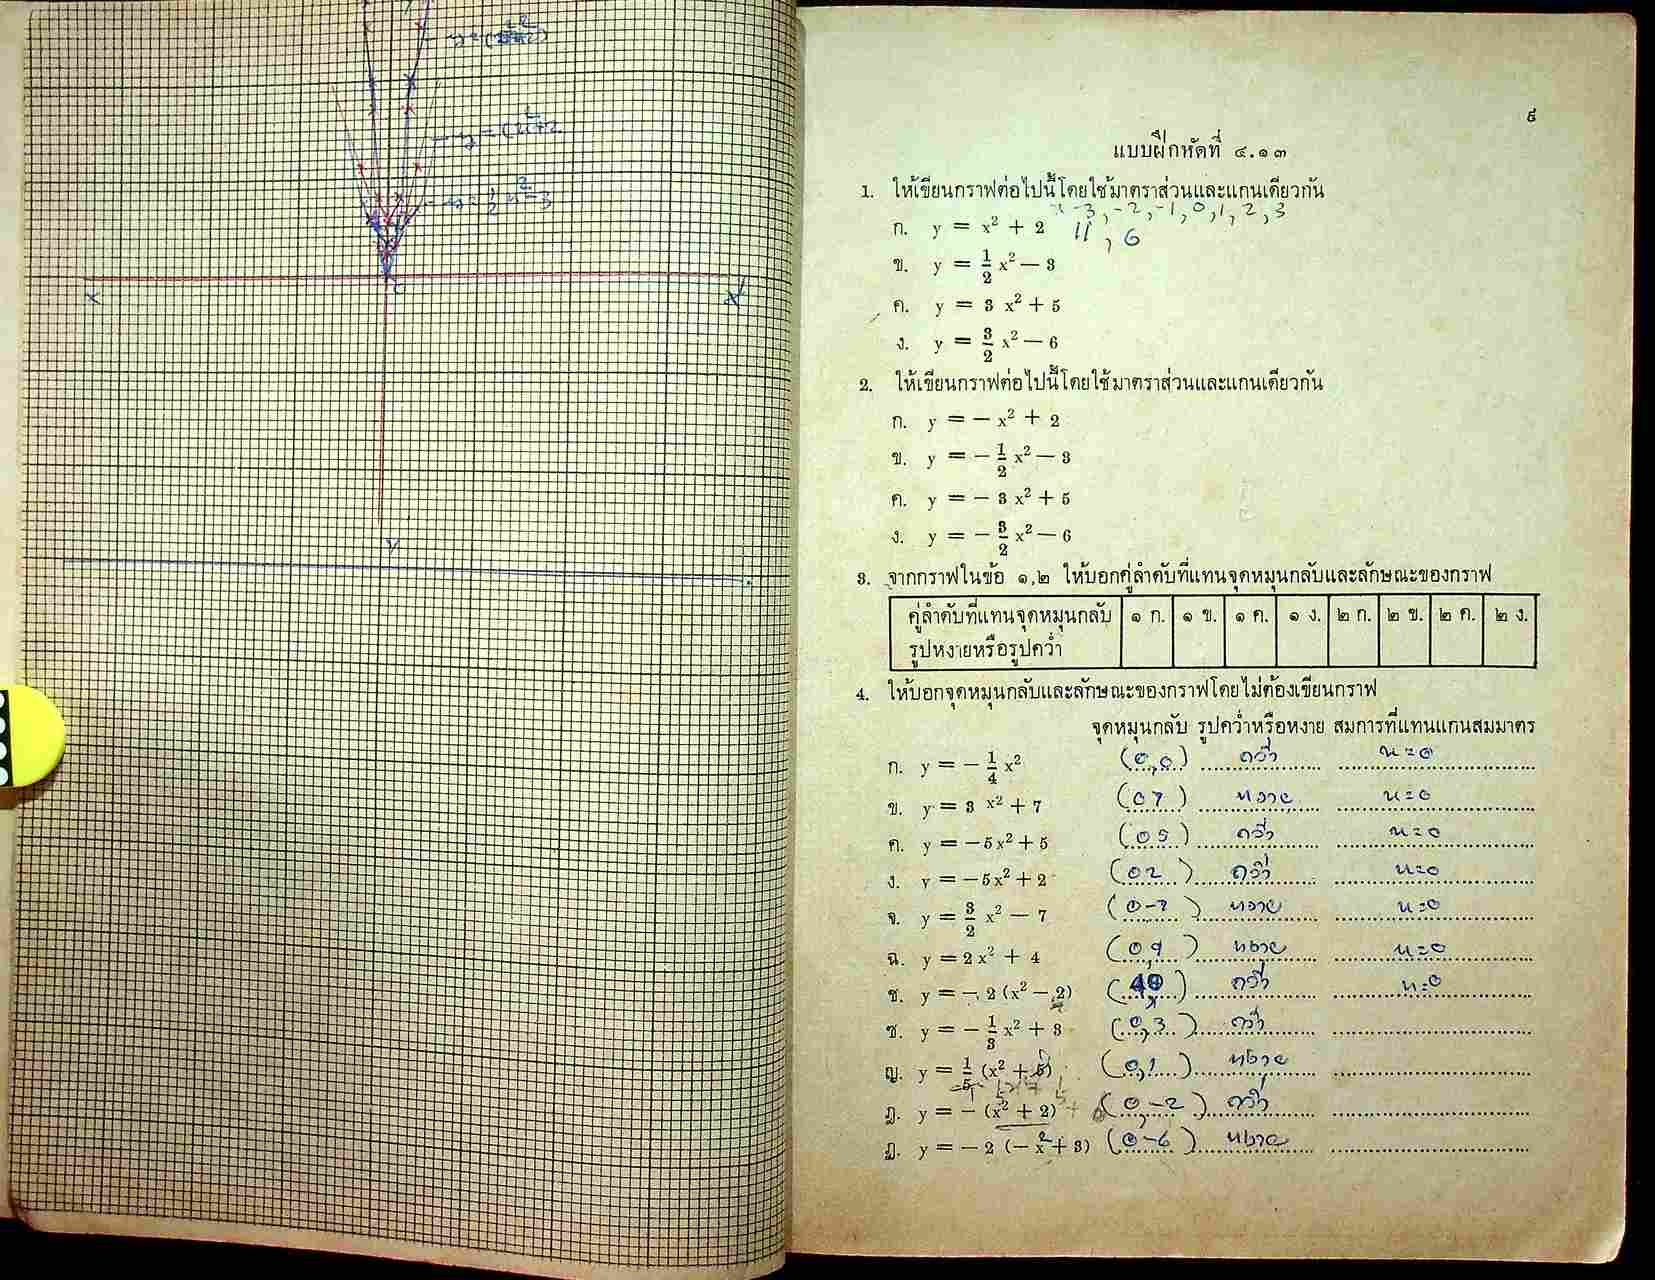 y = (x²+2
y = ½x² - 3
X
X'
Y
๙
แบบฝึกหัดที่ ๔.๑๓
1. ให้เขียนกราฟต่อไปนี้โดยใช้มาตราส่วนและแกนเดียวกัน
x -3, -2, -1, 0, 1, 2, 3
ก. y = x² + 2 11, 6
ข. y = 1/2 x² — 3
ค. y = 3 x² + 5
ง. y = 3/2 x² — 6
2. ให้เขียนกราฟต่อไปนี้โดยใช้มาตราส่วนและแกนเดียวกัน
ก. y = — x² + 2
ข. y = — 1/2 x² — 3
ค. y = — 3 x² + 5
ง. y = — 3/2 x² — 6
3. จากกราฟในข้อ ๑,๒ ให้บอกคู่ลำดับที่แทนจุดหมุนกลับและลักษณะของกราฟ
คู่ลำดับที่แทนจุดหมุนกลับ ๑ ก. ๑ ข. ๑ ค. ๑ ง. ๒ ก. ๒ ข. ๒ ค. ๒ ง.
รูปหงายหรือรูปคว่ำ
4. ให้บอกจุดหมุนกลับและลักษณะของกราฟโดยไม่ต้องเขียนกราฟ
จุดหมุนกลับ รูปคว่ำหรือหงาย สมการที่แทนแกนสมมาตร
ก. y = — 1/4 x² (0,0) คว่ำ x=0
ข. y = 3 x² + 7 (0 7) หงาย x=0
ค. y = —5x² + 5 (0 5) คว่ำ x=0
ง. y = —5x² + 2 (0 2) คว่ำ x=0
จ. y = 3/2 x² — 7 (0-7) หงาย x=0
ฉ. y = 2x² + 4 (0,4) หงาย x=0
ช. y = — 2 (x² — 2) ( ) คว่ำ x=0
ซ. y = — 1/3 x² + 3 (0,3) คว่ำ
ญ. y = 1/5 (x² + 5) (0,1) หงาย
ฎ. y = — (x² + 2) (0,-2) คว่ำ
ฏ. y = — 2 (— x² + 3) (0-6) หงาย